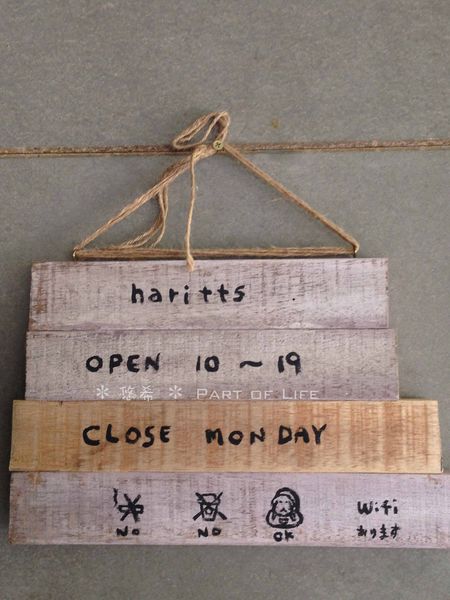 haritts
OPEN 10 ~ 19
＊ 悠希 ＊ PART OF LIFE
CLOSE MONDAY
NO NO OK Wifi
あります